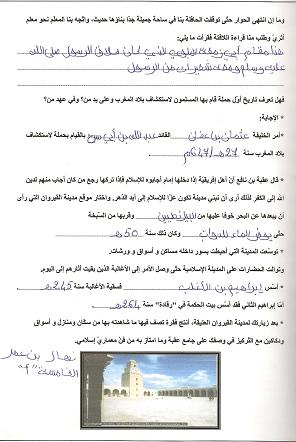 وما إن انتهى الحوار حتّى توقفت الحافلة بنا في ساحة جميلة جدّا بناؤها حديث، واتّجه بنا المعلم نحو معلم
أثريّ وطلب منّا قراءة اللافتة فقرأت ما يلي:
هذا مقام أبي زمعة البلوي الذي حلاق الرسول صلى الله
عليه وسلم ومعه شعيرات من الرسول
فهل تعرف تاريخ أوّل حملة قام بها المسلمون لاستكشاف بلاد المغرب وعلى يد من؟ وفي عهد من؟
* الإجابة:
* أمر الخليفة عثمان بن عفان القائد عبد الله بن أبي سرح بالقيام بحملة لاستكشاف
بلاد المغرب سنة 27هـ/647م
* قال عقبة بن نافع أنّ أهل إفريقيّة إذا دخلها إمام أجابوه للإسلام فإذا تركها رجع من كان أجاب منهم لدين
الله إلى الكفر لذلك أرى أن نبني مدينة تكون عزّا للإسلام إلى أبد الدّهر. واختار موقع مدينة القيروان التي رأى
أن يبعدها عن البحر خوفا عليها من البيزنطيين وقربها من السّبخة
حتّى للدواب وكان ذلك سنة 50هـ
* توسّعت المدينة التي أحيطت بسور داخله مساكن و أسواق و ورشات.
وتوالت الحضارات على المدينة الإسلامية حتّى وصل الأمر إلى الأغالبة الذين بقيت آثارهم إلى اليوم.
* أسّس إبراهيم بن الأغلب فسقية الأغالبة سنة 245هـ
أمّا إبراهيم الثاني فقد أسّس بيت الحكمة في "رقّادة" سنة 264هـ
* بعد زيارتك لمدينة القيروان العتيقة، أنتج فقرة تصف فيها ما شاهدته بها من سكّان ومنازل و أسواق
ودكاكين مع التركيز في وصفك على جامع عقبة وما امتاز به من فنّ معماريّ إسلامي.
نضال بن عمر
الخامسة "أ"